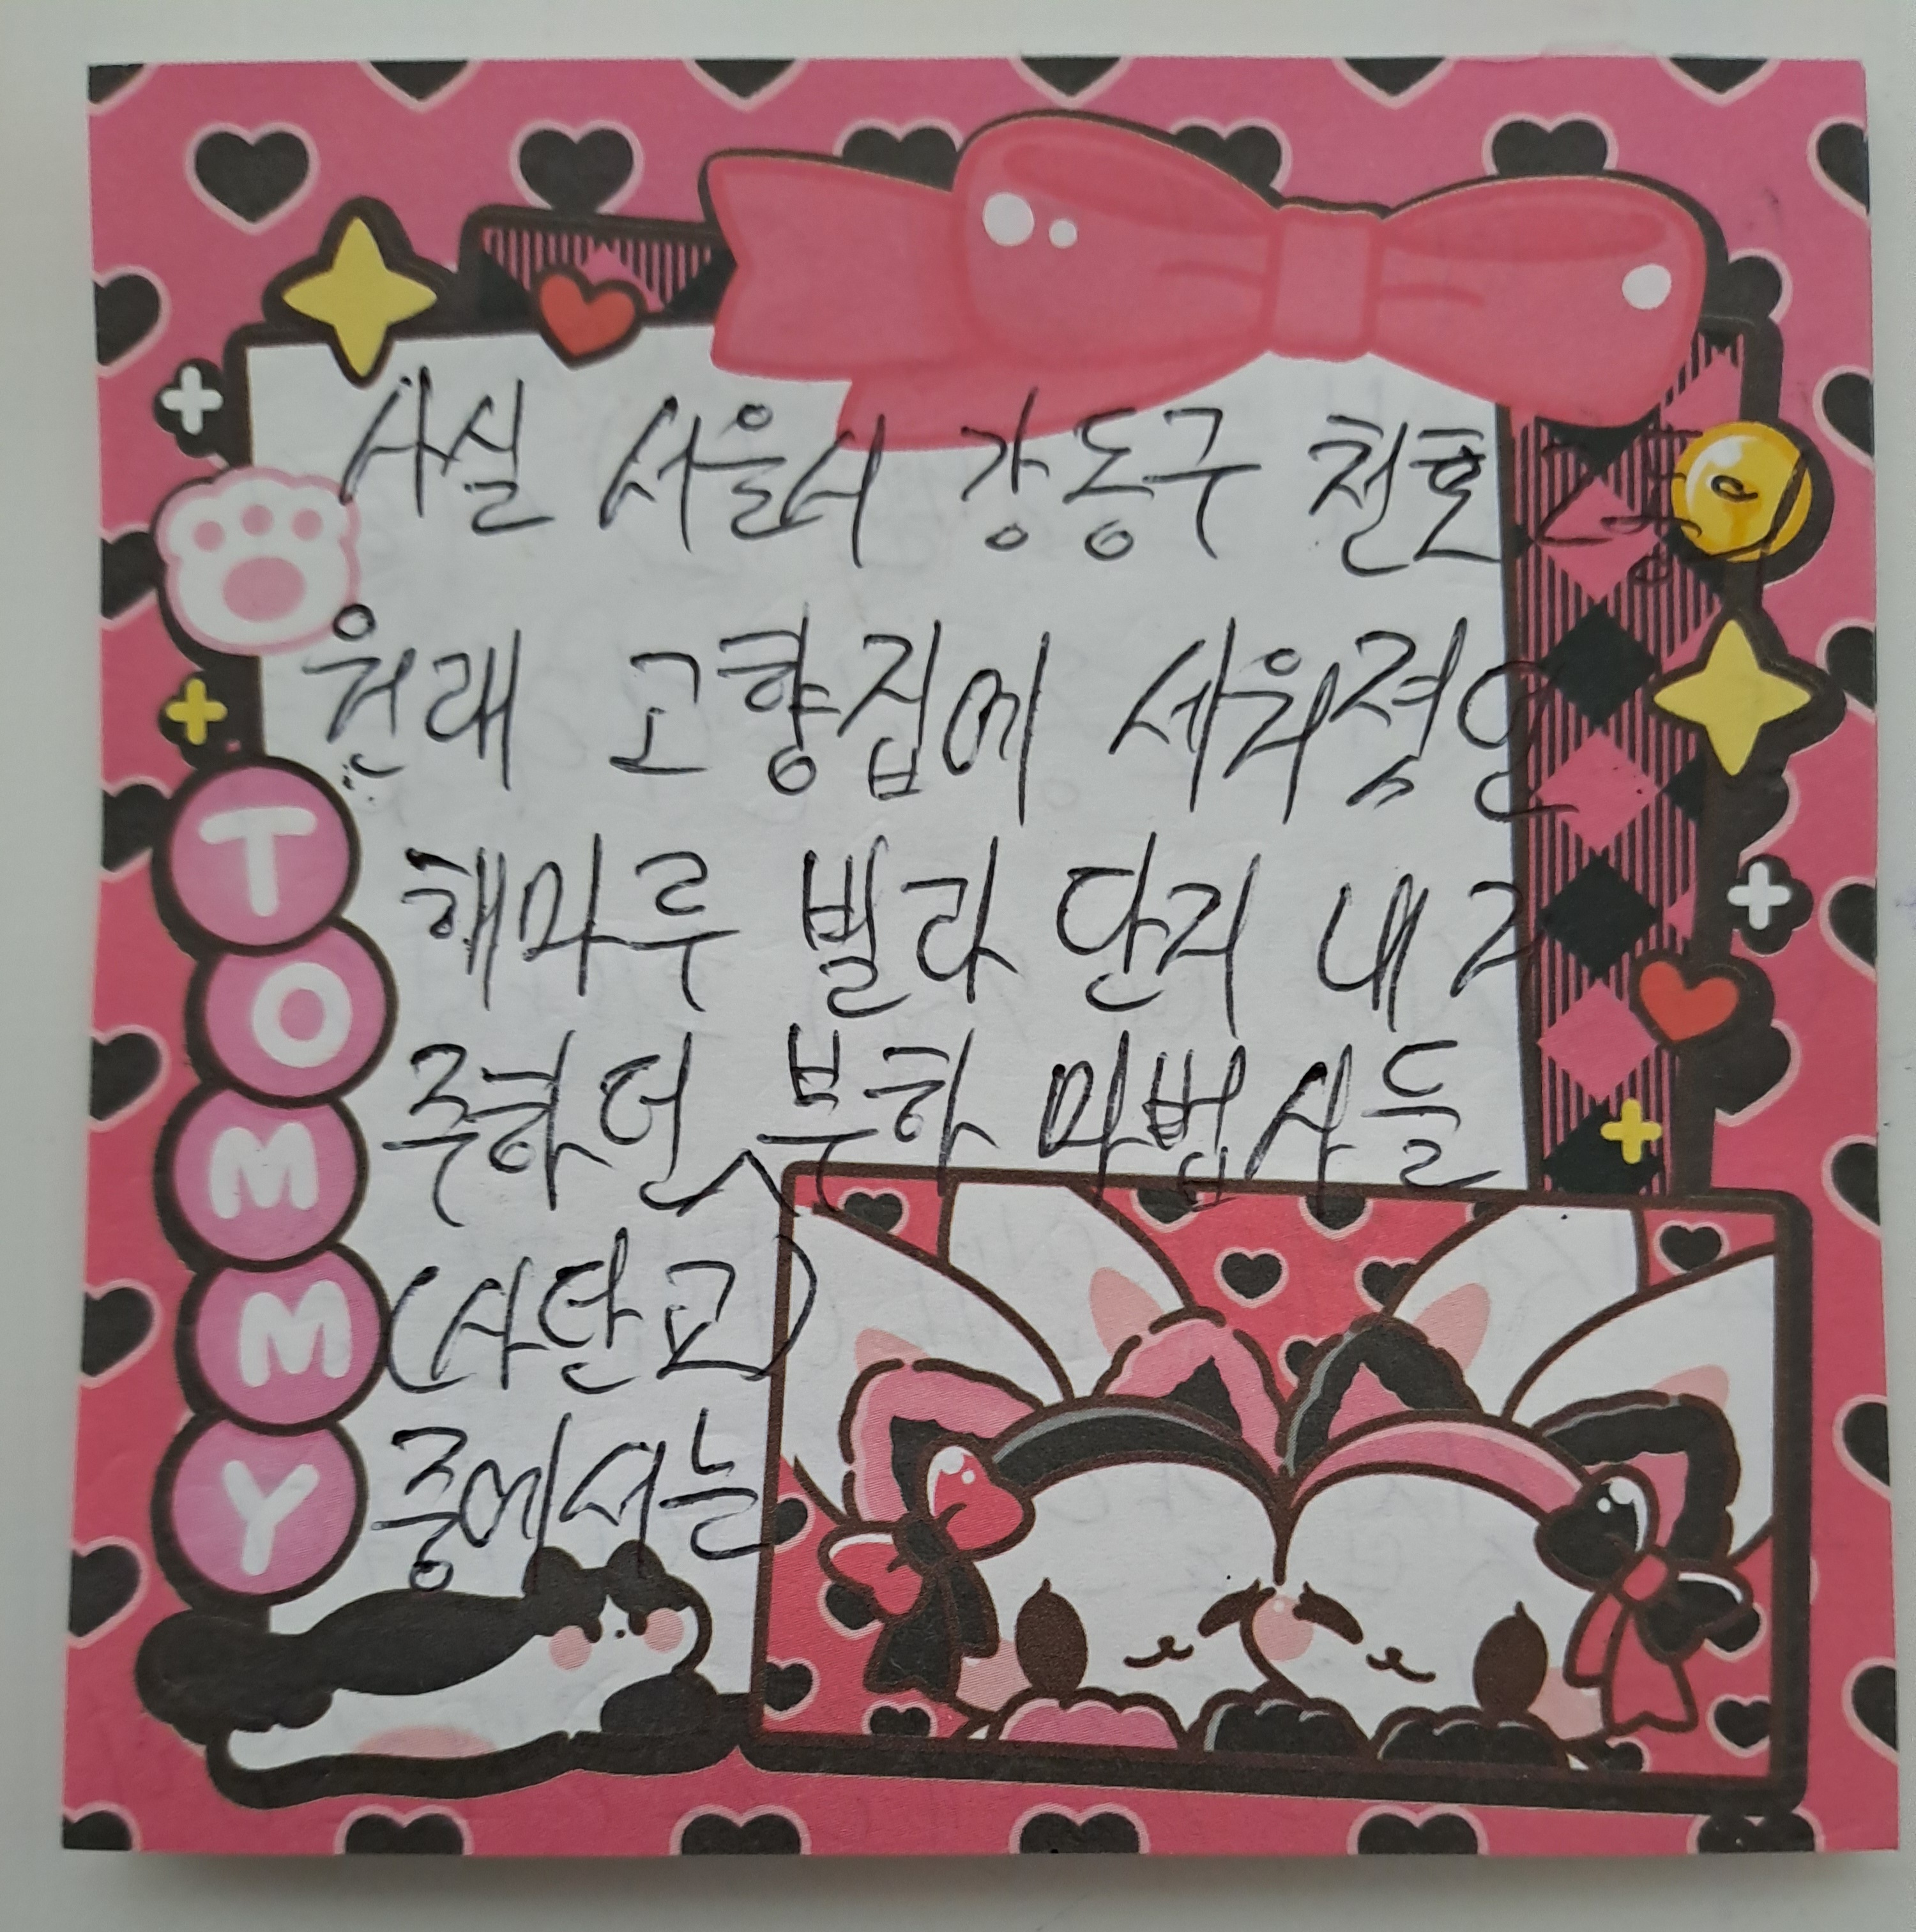 사실 서울시 강동구 천호 2동의
원래 고향집에 세워졌던
해마루 빌라 단지 내 거
주하던 부하 마법사들
(사단고)
중에서는
TOMMY